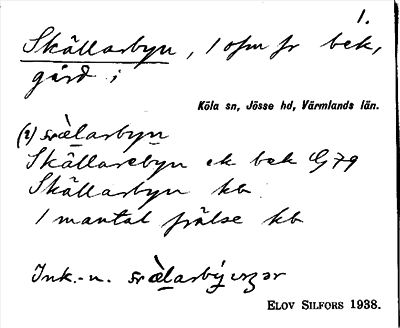 1.
Skällarbyn, 1 ofm fr bek,
gård ;
Köla sn, Jösse hd, Värmlands län.
(2)
Skällarebyn ek bek G 79
Skällarbyn kb
1 mantal frälse kb
Ink.-n.
ELOV SILFORS 1938.